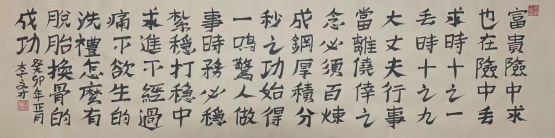 富貴險中求
也在險中丟
求時十之一
丟時十之九
大丈夫行事
當離僥倖之
念必須百煉
成鋼厚積分
秒之功始得
一鳴驚人做
事時務必穩
紮穩打穩中
求進不經過
痛不欲生的
洗禮怎麼有
脫胎換骨的
成功
癸卯年正月